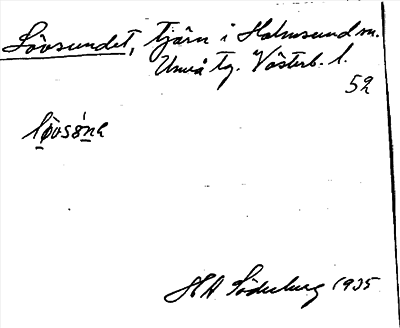 Lövsundet, tjärn i Holmsund sn.
Umeå tg. Västerb. l.
52
H A Söderberg 1935